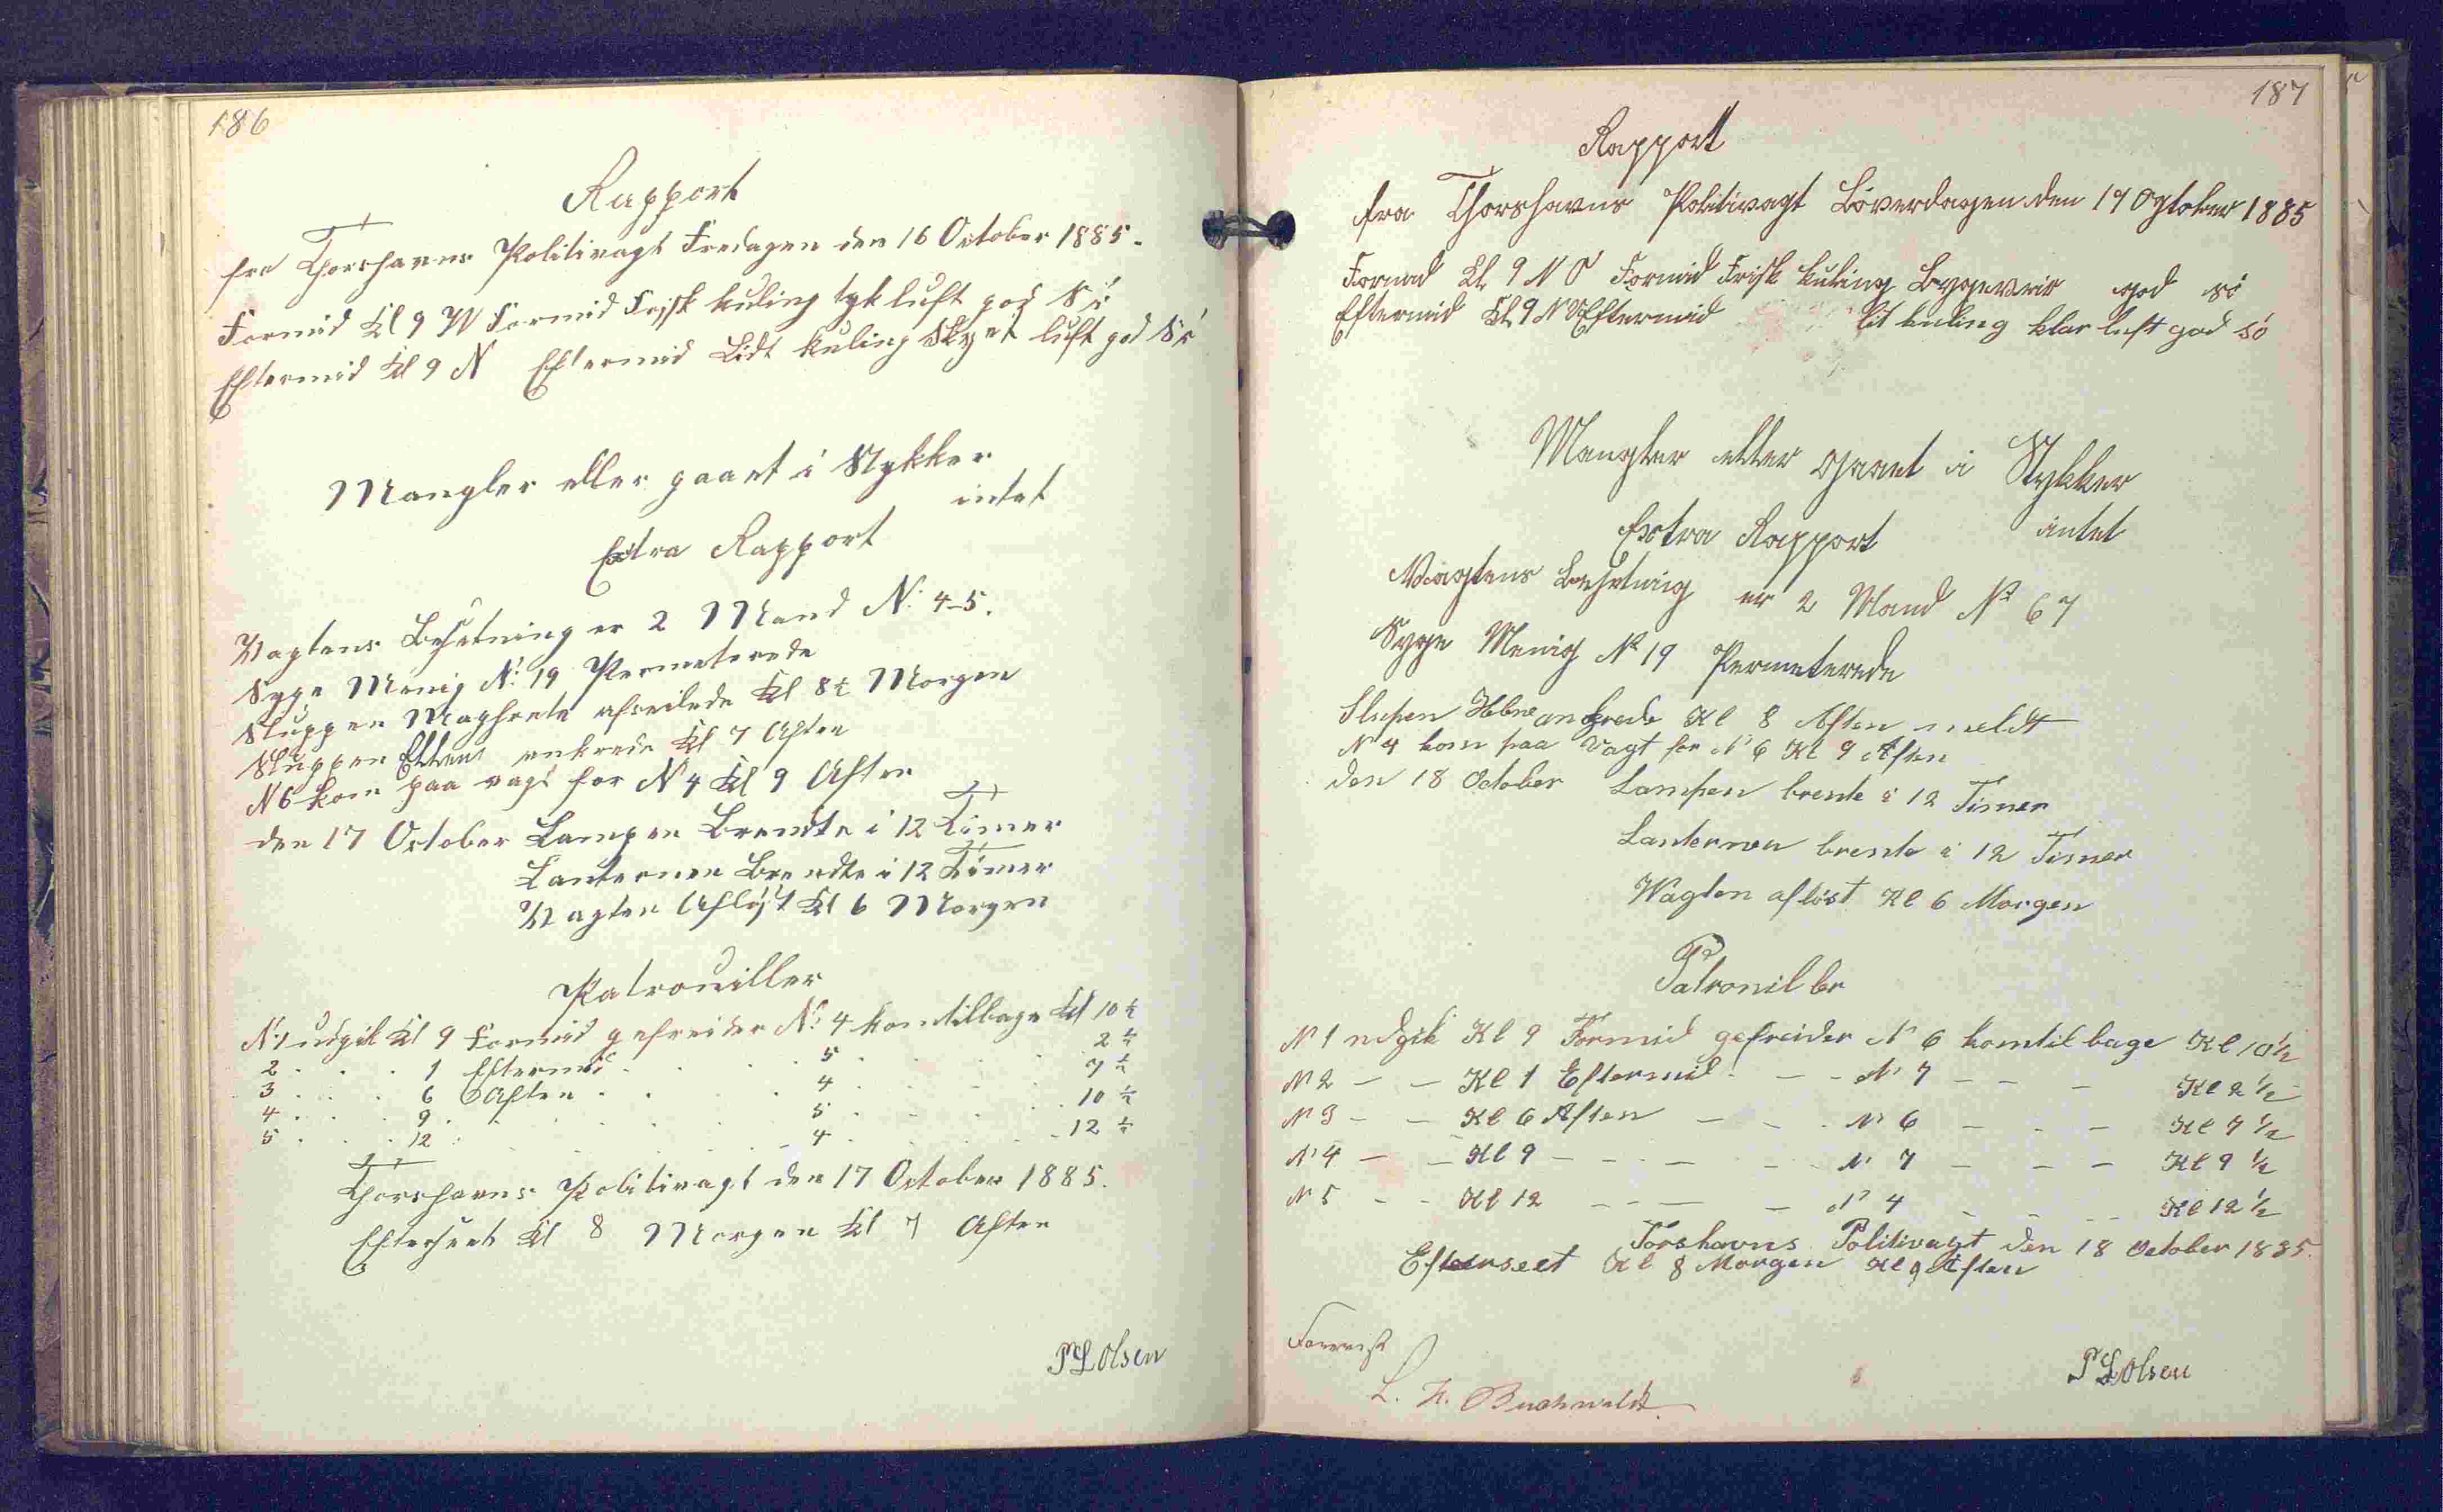 186
Rapport
fra Thorshavns Politivagt Fredagen den 16 October 1885.
Formid Kl 9 W Formid Frisk kuling tyk luft god Sö
Eftermid Kl 9 N Eftermid Lidt kuling Skyet luft god Sö
Mangler eller gaaet i Stykker
intet
Extra Rapport
Vagtens Besetning er 2 Mand No 4-5.
Syge Menig No 19 Permeterede
Sluppen afseilede Kl 8½ Morgen
Sluppen ankrede Kl 7 Aften
N 6 kom paa vagt for N 4 Kl 9 Aften
den 17 October Lampen Brendte i 12 Timer
Lanternen Brendte i 12 Timer
Vagten Afløst Kl 6 Morgen
Patrouiller
No 1 udgik Kl 9 Formid gefreider No 4 kom tilbage Kl 10½
2 . . . 1 Eftermid . . . 5 . . . 2½
3 . . . 6 Aften . . . 4 . . . 7½
4 . . . 9 . . . 5 . . . 10½
5 . . . 12 . . . 4 . . . 12½
Thorshavns Politivagt den 17 October 1885.
Efterseet Kl 8 Morgen Kl 7 Aften
P L Olsen
187
Rapport
fra Thorshavns Politivagt Löverdagen den 17 Ogtober 1885
Formid Kl 9 N O Formid Frisk kuling god sö
Eftermid Kl 9 N Eftermid lit kuling klar luft god sö
Mangler eller gaaet i Stykker
Extra Rapport intet
Vagtens Besetning er 2 Mand No 6 7
Syge Menig No 19 Permeterede
Slupen ankrede Kl 8 Aften
N 4 kom paa Vagt for No 6 Kl 9 Aften
den 18 October Lampen brente i 12 Timer
Lanternen brente i 12 Timer
Wagten afløst Kl 6 Morgen
Patronil ler
No 1 udgik Kl 9 Formid gefreider No 6 komtilbage Kl 10½
No 2 - - Kl 1 Eftermid - - - No 7 - - - Kl 2½
No 3 - - Kl 6 Aften - - - No 6 - - - Kl 7½
No 4 - - Kl 9 - - - - - No 7 - - - Kl 9½
No 5 - - Kl 12 - - - No 4 - - - Kl 12½
Torshavns Politivagt den 18 October 1885.
Efterseet Kl 8 Morgen Kl 9 Aften
Forevist
P L Olsen
L. Buchwaldt